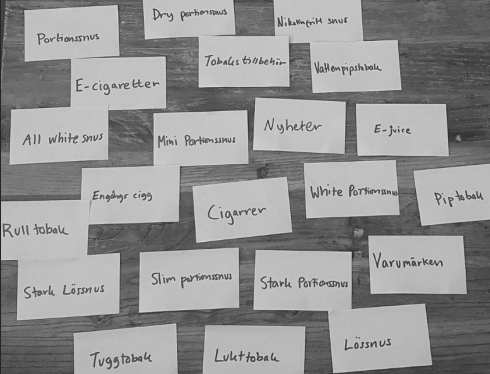 Portionssnus
Dry portionssnus
Nikotinfritt snus
E-cigaretter
Tobakstillbehör
Vattenpipstobak
All white snus
Mini Portionssnus
Nyheter
E-juice
Engångs cigg
Cigarrer
White Portionssnus
Piptobak
Rulltobak
Stark Lössnus
Slim portionssnus
Stark Portionssnus
Varumärken
Tuggtobak
Lukttobak
Lössnus